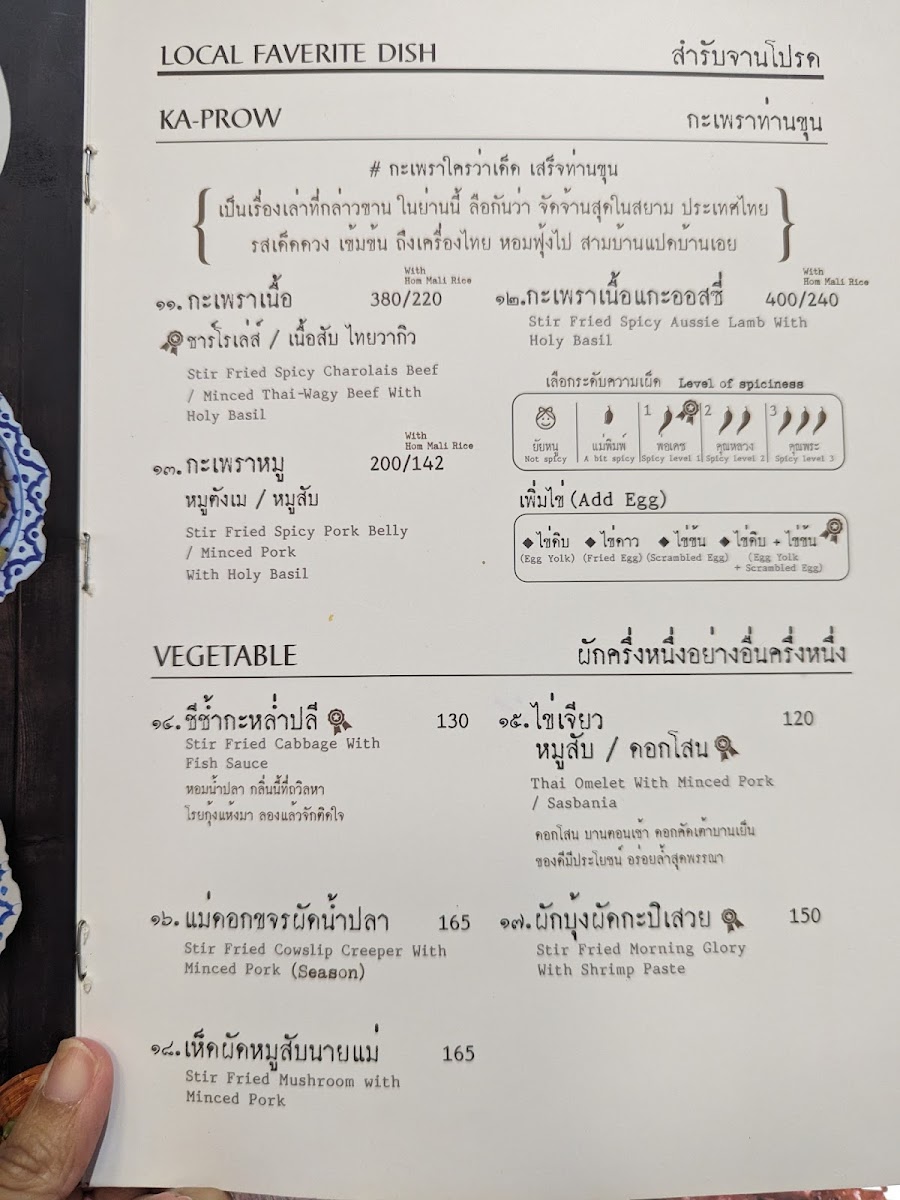 LOCAL FAVERITE DISH สำรับจานโปรด
KA-PROW กะเพราท่านขุน
# กะเพราใครว่าเด็ด เสร็จท่านขุน
เป็นเรื่องเล่าที่กล่าวขาน ในย่านนี้ ลือกันว่า จัดจ้านสุดในสยาม ประเทศไทย
รสเด็ดดวง เข้มข้น ถึงเครื่องไทย หอมฟุ้งไป สามบ้านแปดบ้านเอย
With
Hom Mali Rice
๑๑. กะเพราเนื้อ 380/220
ชาร์โรเล่ส์ / เนื้อสับ ไทยวากิว
Stir Fried Spicy Charolais Beef
/ Minced Thai-Wagy Beef With
Holy Basil
With
Hom Mali Rice
๑๒. กะเพราเนื้อแกะออสซี่ 400/240
Stir Fried Spicy Aussie Lamb With
Holy Basil
With
Hom Mali Rice
๑๓. กะเพราหมู 200/142
หมูตังเม / หมูสับ
Stir Fried Spicy Pork Belly
/ Minced Pork
With Holy Basil
เลือกระดับความเผ็ด Level of spiciness
1 2 3
ยัยหนู แม่พิมพ์ พ่อเดช คุณหลวง คุณพระ
Not spicy A bit spicy Spicy level 1 Spicy level 2 Spicy level 3
เพิ่มไข่ (Add Egg)
◆ไข่ดิบ ◆ไข่ดาว ◆ไข่ข้น ◆ไข่ดิบ + ไข่ข้น
(Egg Yolk) (Fried Egg) (Scrambled Egg) (Egg Yolk
+ Scrambled Egg)
VEGETABLE ผักครึ่งหนึ่งอย่างอื่นครึ่งหนึ่ง
๑๔. ชีช้ำกะหล่ำปลี 130
Stir Fried Cabbage With
Fish Sauce
หอมน้ำปลา กลิ่นนี้ที่ถวิลหา
โรยกุ้งแห้งมา ลองแล้วจักติดใจ
๑๕. ไข่เจียว 120
หมูสับ / ดอกโสน
Thai Omelet With Minced Pork
/ Sasbania
ดอกโสน บานตอนเช้า ดอกคัดเค้าบานเย็น
ของดีมีประโยชน์ อร่อยล้ำสุดพรรณา
๑๖. แม่ดอกขจรผัดน้ำปลา 165
Stir Fried Cowslip Creeper With
Minced Pork (Season)
๑๗. ผักบุ้งผัดกะปิเสวย 150
Stir Fried Morning Glory
With Shrimp Paste
๑๘. เห็ดผัดหมูสับนายแม่ 165
Stir Fried Mushroom with
Minced Pork